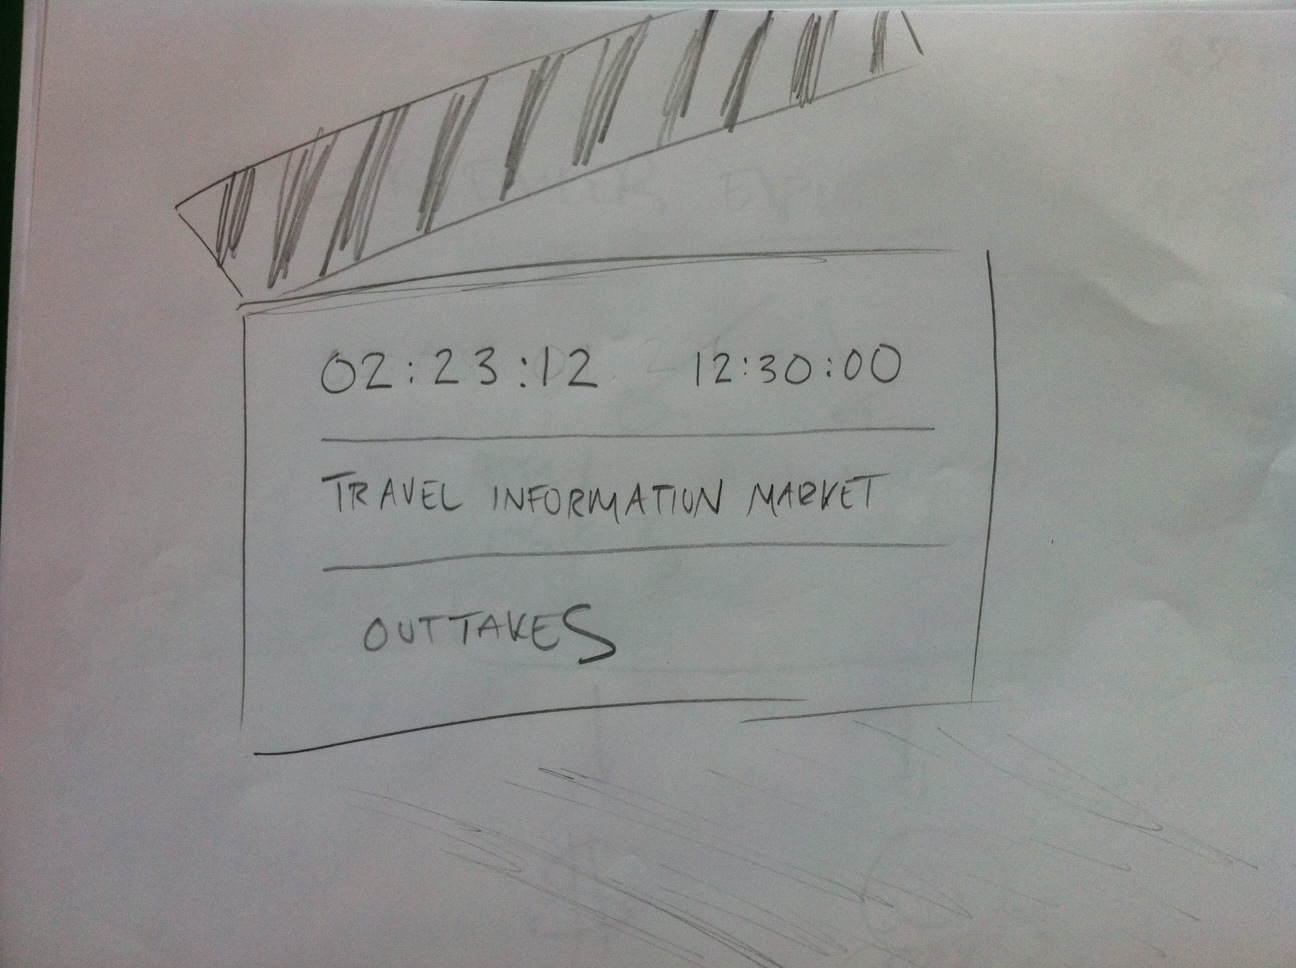 02:23:12 12:30:00
TRAVEL INFORMATION MARKET
OUTTAKES